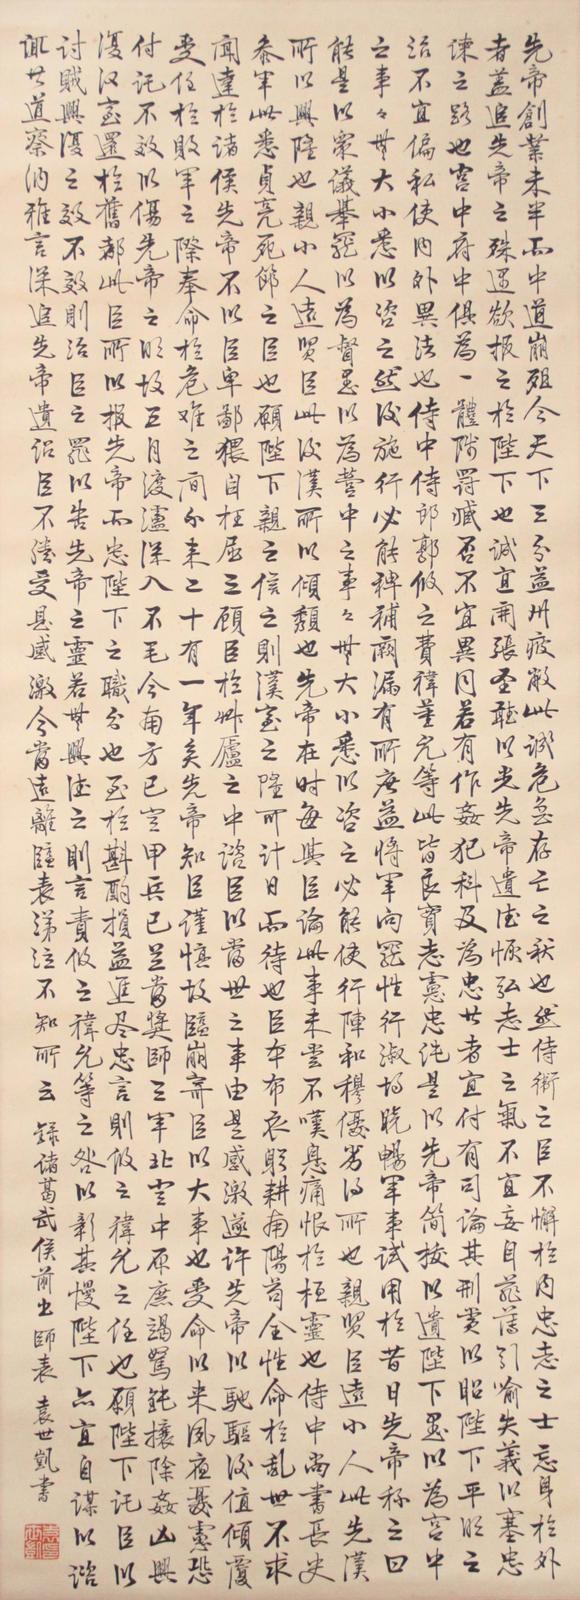 先帝創業未半而中道崩殂今天下三分益州疲敝此誠危急存亡之秋也然侍衛之臣不懈於內忠志之士忘身於外
者蓋追先帝之殊遇欲報之於陛下也誠宜開張聖聽以光先帝遺德恢弘志士之氣不宜妄自菲薄引喻失義以塞忠
諫之路也宮中府中俱為一體陟罰臧否不宜異同若有作姦犯科及為忠善者宜付有司論其刑賞以昭陛下平明之
治不宜偏私使內外異法也侍中侍郎郭攸之費禕董允等此皆良實志慮忠純是以先帝簡拔以遺陛下愚以為宮中
之事々無大小悉以咨之然後施行必能裨補闕漏有所廣益將軍向寵性行淑均曉暢軍事試用於昔日先帝稱之曰
能是以眾議舉寵以為督愚以為營中之事々無大小悉以咨之必能使行陣和穆優劣得所也親賢臣遠小人此先漢
所以興隆也親小人遠賢臣此後漢所以傾頹也先帝在時每與臣論此事未嘗不嘆息痛恨於桓靈也侍中尚書長史
參軍此悉貞亮死節之臣也願陛下親之信之則漢室之隆可計日而待也臣本布衣躬耕南陽苟全性命於亂世不求
聞達於諸侯先帝不以臣卑鄙猥自枉屈三顧臣於草廬之中諮臣以當世之事由是感激遂許先帝以馳驅後值傾覆
受任於敗軍之際奉命於危難之間爾來二十有一年矣先帝知臣謹慎故臨崩寄臣以大事也受命以來夙夜憂慮恐
付託不效以傷先帝之明故五月渡瀘深入不毛今南方已定甲兵已足當獎帥三軍北定中原庶竭駑鈍攘除姦凶興
復漢室還於舊都此臣所以報先帝而忠陛下之職分也至於斟酌損益進盡忠言則攸之禕允之任也願陛下託臣以
討賊興復之效不效則治臣之罪以告先帝之靈若無興德之則言責攸之禕允等之咎以彰其慢陛下亦宜自謀以諮
諏善道察納雅言深追先帝遺詔臣不勝受恩感激今當遠離臨表涕泣不知所云 錄諸葛武侯前出師表 袁世凱書